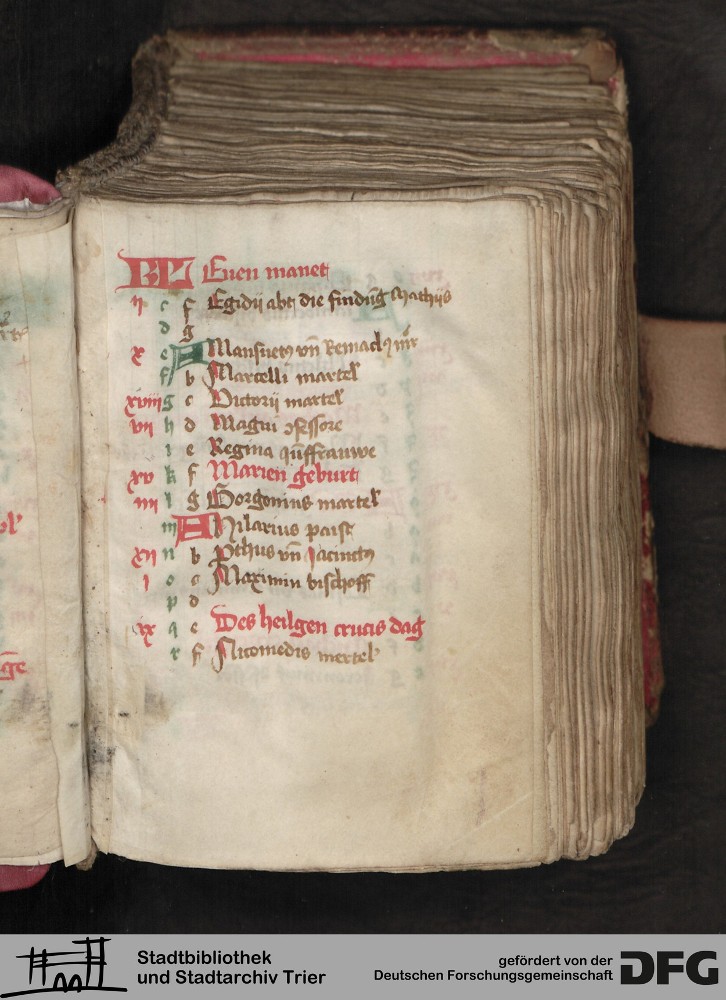 KL Euen manet
ij c f Egidij abt die findūg Mathijs
d g
x e A Mansuetꝰ vn̄ Remaclꝰ
f b Marcelli martel
xviij g c Victorij martel
vij h d Magni ↄfessore
i e Regina
xv k f Marien geburt
iiij l g Gorgonius martel
m A Hilarius paist
xij n b Prothus vn̄ Jacinctꝰ
i o c Maximin bischoff
p d
ix q e Des heilgen crucis dag
r f Nicomedis mertel
Stadtbibliothek
und Stadtarchiv Trier
gefördert von der
Deutschen Forschungsgemeinschaft
DFG